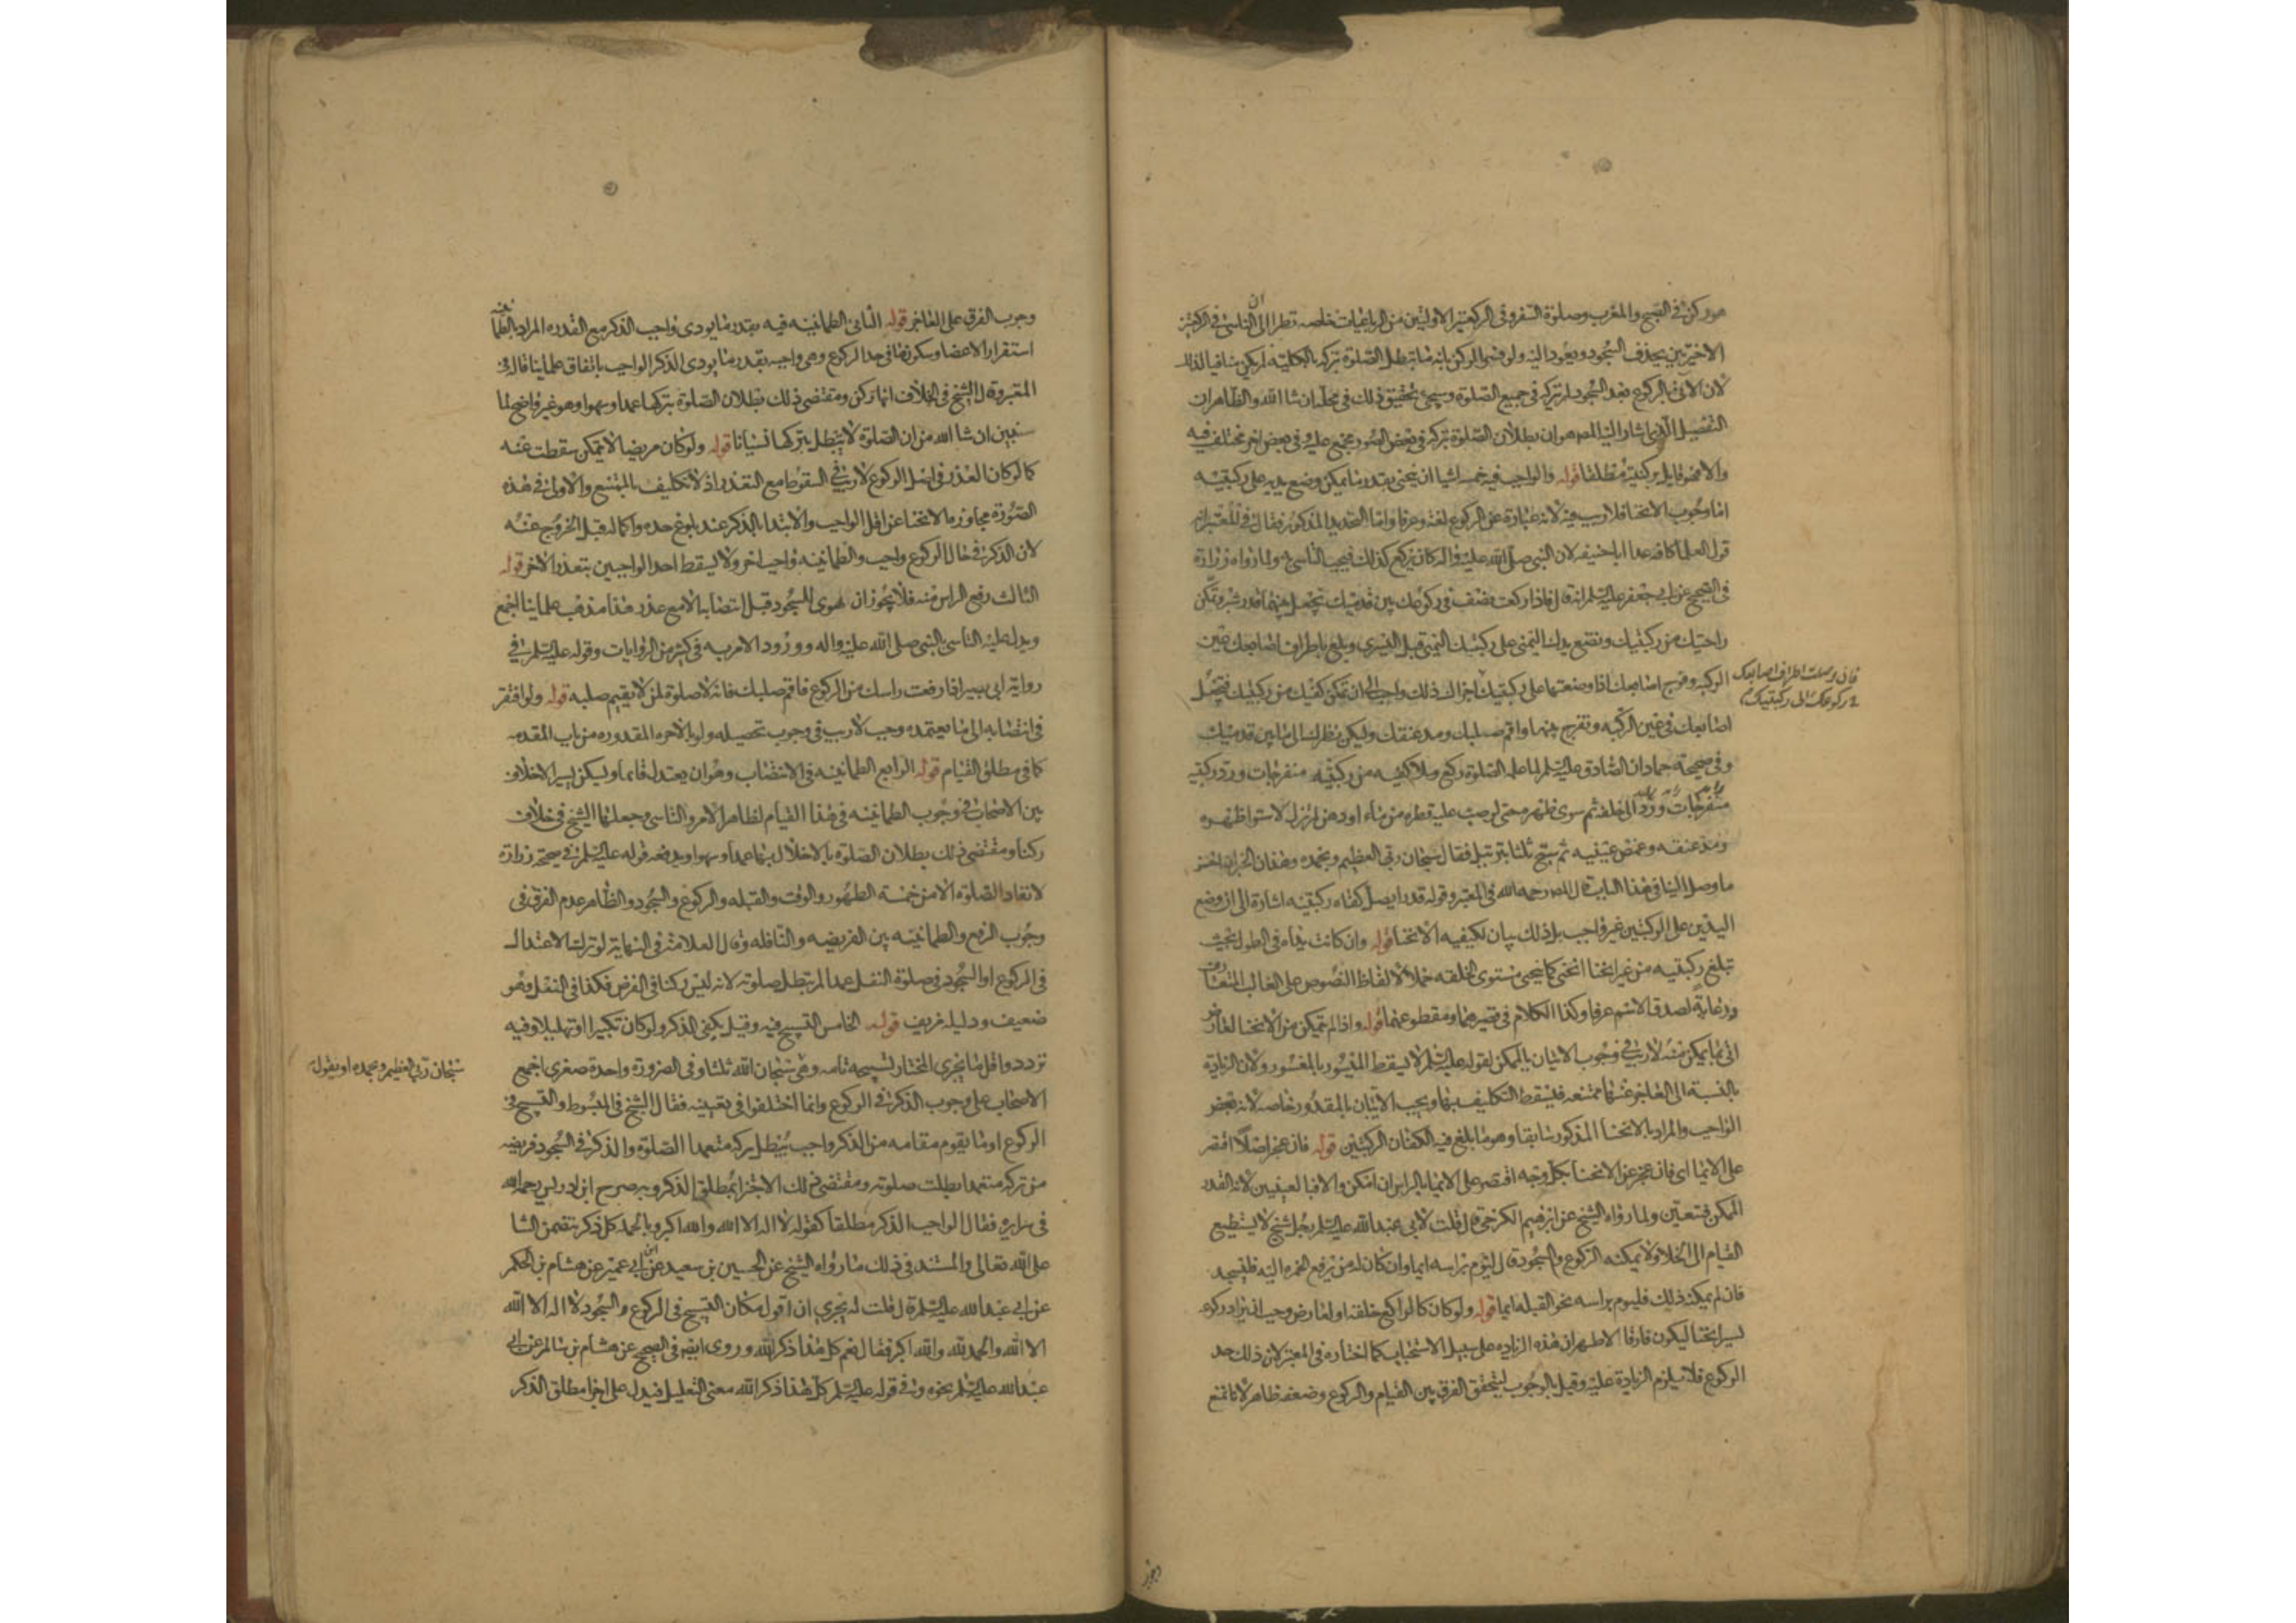 هو ركن في الصبح والمغرب وصلوة السفر وفي الركعتين الاوليين من الرباعيات خاصه نظرا الى ان الناسي في الركعتين
الاخيرتين يحذف السجود ويعود اليه ولو فسرنا الركن بانه ما تبطل الصلوة بتركه بالكليه لم يكن منافيا لذلك
لان الاتي بالركوع بعد السجود لم يتركه في جميع الصلوة وسيجي تحقيق ذلك في محله ان شا الله والظاهر ان
التفصيل الذي اشار اليه المص هو ان بطلان الصلوة بتركه في بعض الصور مجمع عليه وفي بعض اخر مختلف فيه
والا فهو قايل بركنيته مطلقا قوله والواجب فيه خمسه اشيا ان ينحني بقدر ما يمكن وضع يديه على ركبتيه
اما وجوب الانحنا فلا ريب فيه لانه عبارة عن الركوع لغة وعرفا واما التحديد المذكور فقال في المعتبر انه
قول العلما كافه عدا ابا حنيفه لان النبي صلى الله عليه واله كان يركع كذلك فيجب التاسي به ولما رواه زرارة
في الصحيح عن ابي جعفر عليه السلم انه قال فاذا ركعت فصف في ركوعك بين قدميك تجعل بينهما قدر شبر وتمكن
راحتيك من ركبتيك وتضع يدك اليمنى على ركبتك اليمنى قبل اليسرى وبلع باطراف اصابعك عين
الركبه وفرج اصابعك اذا وضعتها على ركبتيك اجزاك ذلك واحب الي ان تمكن كفيك من ركبتيك فتجعل
فان وصلت اطراف اصابعك
في ركوعك الى ركبتيك
اصابعك في عين الركبه وتفرج بينها واقم صلبك ومد عنقك وليكن نظرك الى ما بين قدميك
وفي صحيحة حماد ان الصادق عليه السلم لما علمه الصلوة ركع وملا كفيه من ركبتيه منفرجات ورد ركبتيه
منفرجات ورد الى خلفه ثم سوى ظهره حتى لو صبت عليه قطره من ماء او دهن لم تزل لاستوا ظهره
ومد عنقه وغمض عينيه ثم سبح ثلثا بترتيل فقال سبحان ربي العظيم وبحمده وهذان الخبران احسن
ما وصل الينا في هذا الباب قال المص رحمه الله في المعتبر وقوله قدرا يصل كفاه ركبتيه اشارة الى ان وضع
اليدين على الركبتين غير واجب بل ذلك بيان لكيفيه الانحنا قوله وان كانت يداه في الطول بحيث
تبلغ ركبتيه من غير انحنا انحنى كما ينحني مستوى الخلقه حملا لالفاظ النصوص على الغالب المتعارف
ورعاية لصدق الاسم عرفا وكذا الكلام في قصيرهما ومقطوعهما قوله واذا لم يتمكن من الانحنا لعارض
اتى بما يمكن منه لا ريب في وجوب الاتيان بالممكن لقوله عليه السلم لا يسقط الميسور بالمعسور ولان الزيادة
بالنسبة الى العاجز عنها ممتنعه فيسقط التكليف بها ويجب الاتيان بالمقدور خاصه لانه بعض
الواجب والمراد بالانحنا المذكور سابقا وهو ما بلغ فيه الكفان الركبتين قوله فان عجز اصلا اقتصر
على الايما اي فان عجز عن الانحنا بكل وجه اقتصر على الايما بالراس ان امكن والا فبالعينين لانه القدر
الممكن فيتعين ولما رواه الشيخ عن ابرهيم الكرخي قال قلت لابي عبد الله عليه السلم رجل شيخ لا يستطيع
القيام الى الخلا ولا يمكنه الركوع والسجود قال ليوم براسه ايما وان كان له من يرفع الخمره اليه فليسجد
فان لم يمكنه ذلك فليوم براسه نحو القبله ايما قوله ولو كان كالراكع خلقه او لعارض وجب ان يزاد ركوعه
يسير انحنا ليكون فارقا الاظهر ان هذه الزياده على سبيل الاستحباب كما اختاره في المعتبر لان ذلك حد
الركوع فلا يلزم الزيادة عليه وقيل بالوجوب ليتحقق الفرق بين القيام والركوع وضعفه ظاهر لانا نمنع
وجوب الفرق على العاجز قوله الثاني الطمانينه فيه بقدر ما يودى واجب الذكر مع القدره المراد بالطمانينه
استقرار الاعضا وسكونها في حد الركوع وهي واجبه بقدر ما يودى الذكر الواجب باتفاق علماينا قاله في
المعتبر وقال الشيخ في الخلاف انها ركن ومقتضى ذلك بطلان الصلوة بتركها عمدا وسهوا وهو غير واضح لما
سنبين ان شا الله من ان الصلوة لا تبطل بتركها نسيانا قوله ولو كان مريضا لا يتمكن سقطت عنه
كما لو كان العذر في اصل الركوع لا ريب في السقوط مع التعذر اذ لا تكليف بالممتنع والاولى في هذه
الصورة مجاوزه الانحنا عن اقل الواجب والابتدا بالذكر عند بلوغ حده واكماله قبل الخروج عنه
لان الذكر في حال الركوع واجب والطمانينه واجب اخر ولا يسقط احد الواجبين بتعذر الاخر قوله
الثالث رفع الراس منه فلا يجوز ان يهوى للسجود قبل انتصابه الا مع عذر هذا مذهب علماينا اجمع
ويدل عليه التاسي بالنبي صلى الله عليه واله وورود الامر به في كثير من الروايات وقوله عليه السلم في
رواية ابي بصير اذا رفعت راسك من الركوع فاقم صلبك فانه لا صلوة لمن لا يقيم صلبه قوله ولو افتقر
في انتصابه الى ما يعتمده وجب لا ريب في وجوب تحصيله ولو بالاجره المقدوره من باب المقدمه
كما في مطلق القيام قوله الرابع الطمانينه في الانتصاب وهو ان يعتدل قائما ويسكن يسيرا لا خلاف
بين الاصحاب في وجوب الطمانينه في هذا القيام لظاهر الامر والتاسي وجعلها الشيخ في خلاف
ركنا ومقتضى ذلك بطلان الصلوة بالاخلال بها عمدا وسهوا ويدفعه قوله عليه السلم في صحيحة زرارة
لا تعاد الصلوة الا من خمسة الطهور والوقت والقبله والركوع والسجود والظاهر عدم الفرق في
وجوب الرفع والطمانينه بين الفريضه والنافله وقال العلامة في النهاية لو ترك الاعتدال
في الركوع او السجود في صلوة النفل عمدا لم تبطل صلوته لانه ليس ركنا في الفرض فكذا في النفل وهو
ضعيف ودليله مزيف قوله الخامس التسبيح فيه وقيل يكفي الذكر ولو كان تكبيرا او تهليلا وفيه
تردد واقل ما يجزي المختار تسبيحه تامه وهي سبحان الله ثلثا وفي الضرورة واحدة صغرى اجمع
سبحان ربي العظيم وبحمده او يقول
الاصحاب على وجوب الذكر في الركوع وانما اختلفوا في تعيينه فقال الشيخ في المبسوط والتسبيح في
الركوع او ما يقوم مقامه من الذكر واجب تبطل بتركه متعمدا الصلوة والذكر في السجود فريضه
من تركه متعمدا بطلت صلوته ومقتضى ذلك الاجتزا بمطلق الذكر وبه صرح ابن ادريس رحمه الله
في سرايره فقال الواجب الذكر مطلقا كقوله لا اله الا الله والله اكبر وبالجمله كل ذكر تتضمن الثنا
على الله تعالى والمستند في ذلك ما رواه الشيخ عن الحسين بن سعيد عن ابن ابي عمير عن هشام بن الحكم
عن ابي عبد الله عليه السلم قال قلت له يجزي ان اقول مكان التسبيح في الركوع والسجود لا اله الا الله
الا الله والحمد لله والله اكبر فقال نعم كل هذا ذكر الله وروى ايضا في الصحيح عن هشام بن سالم عن ابي
عبد الله عليه السلم نحوه وفي قوله عليه السلم كل هذا ذكر الله معنى التعليل فيدل على اجزا مطلق الذكر